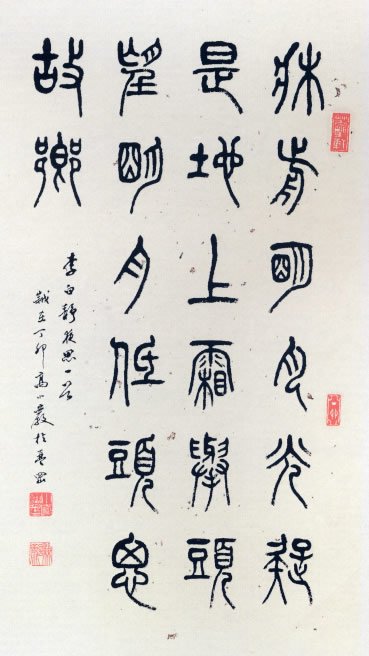 牀前明月光疑
是地上霜舉頭
望明月低頭思
故鄉
李白靜夜思一首
歲在丁卯高小巖於